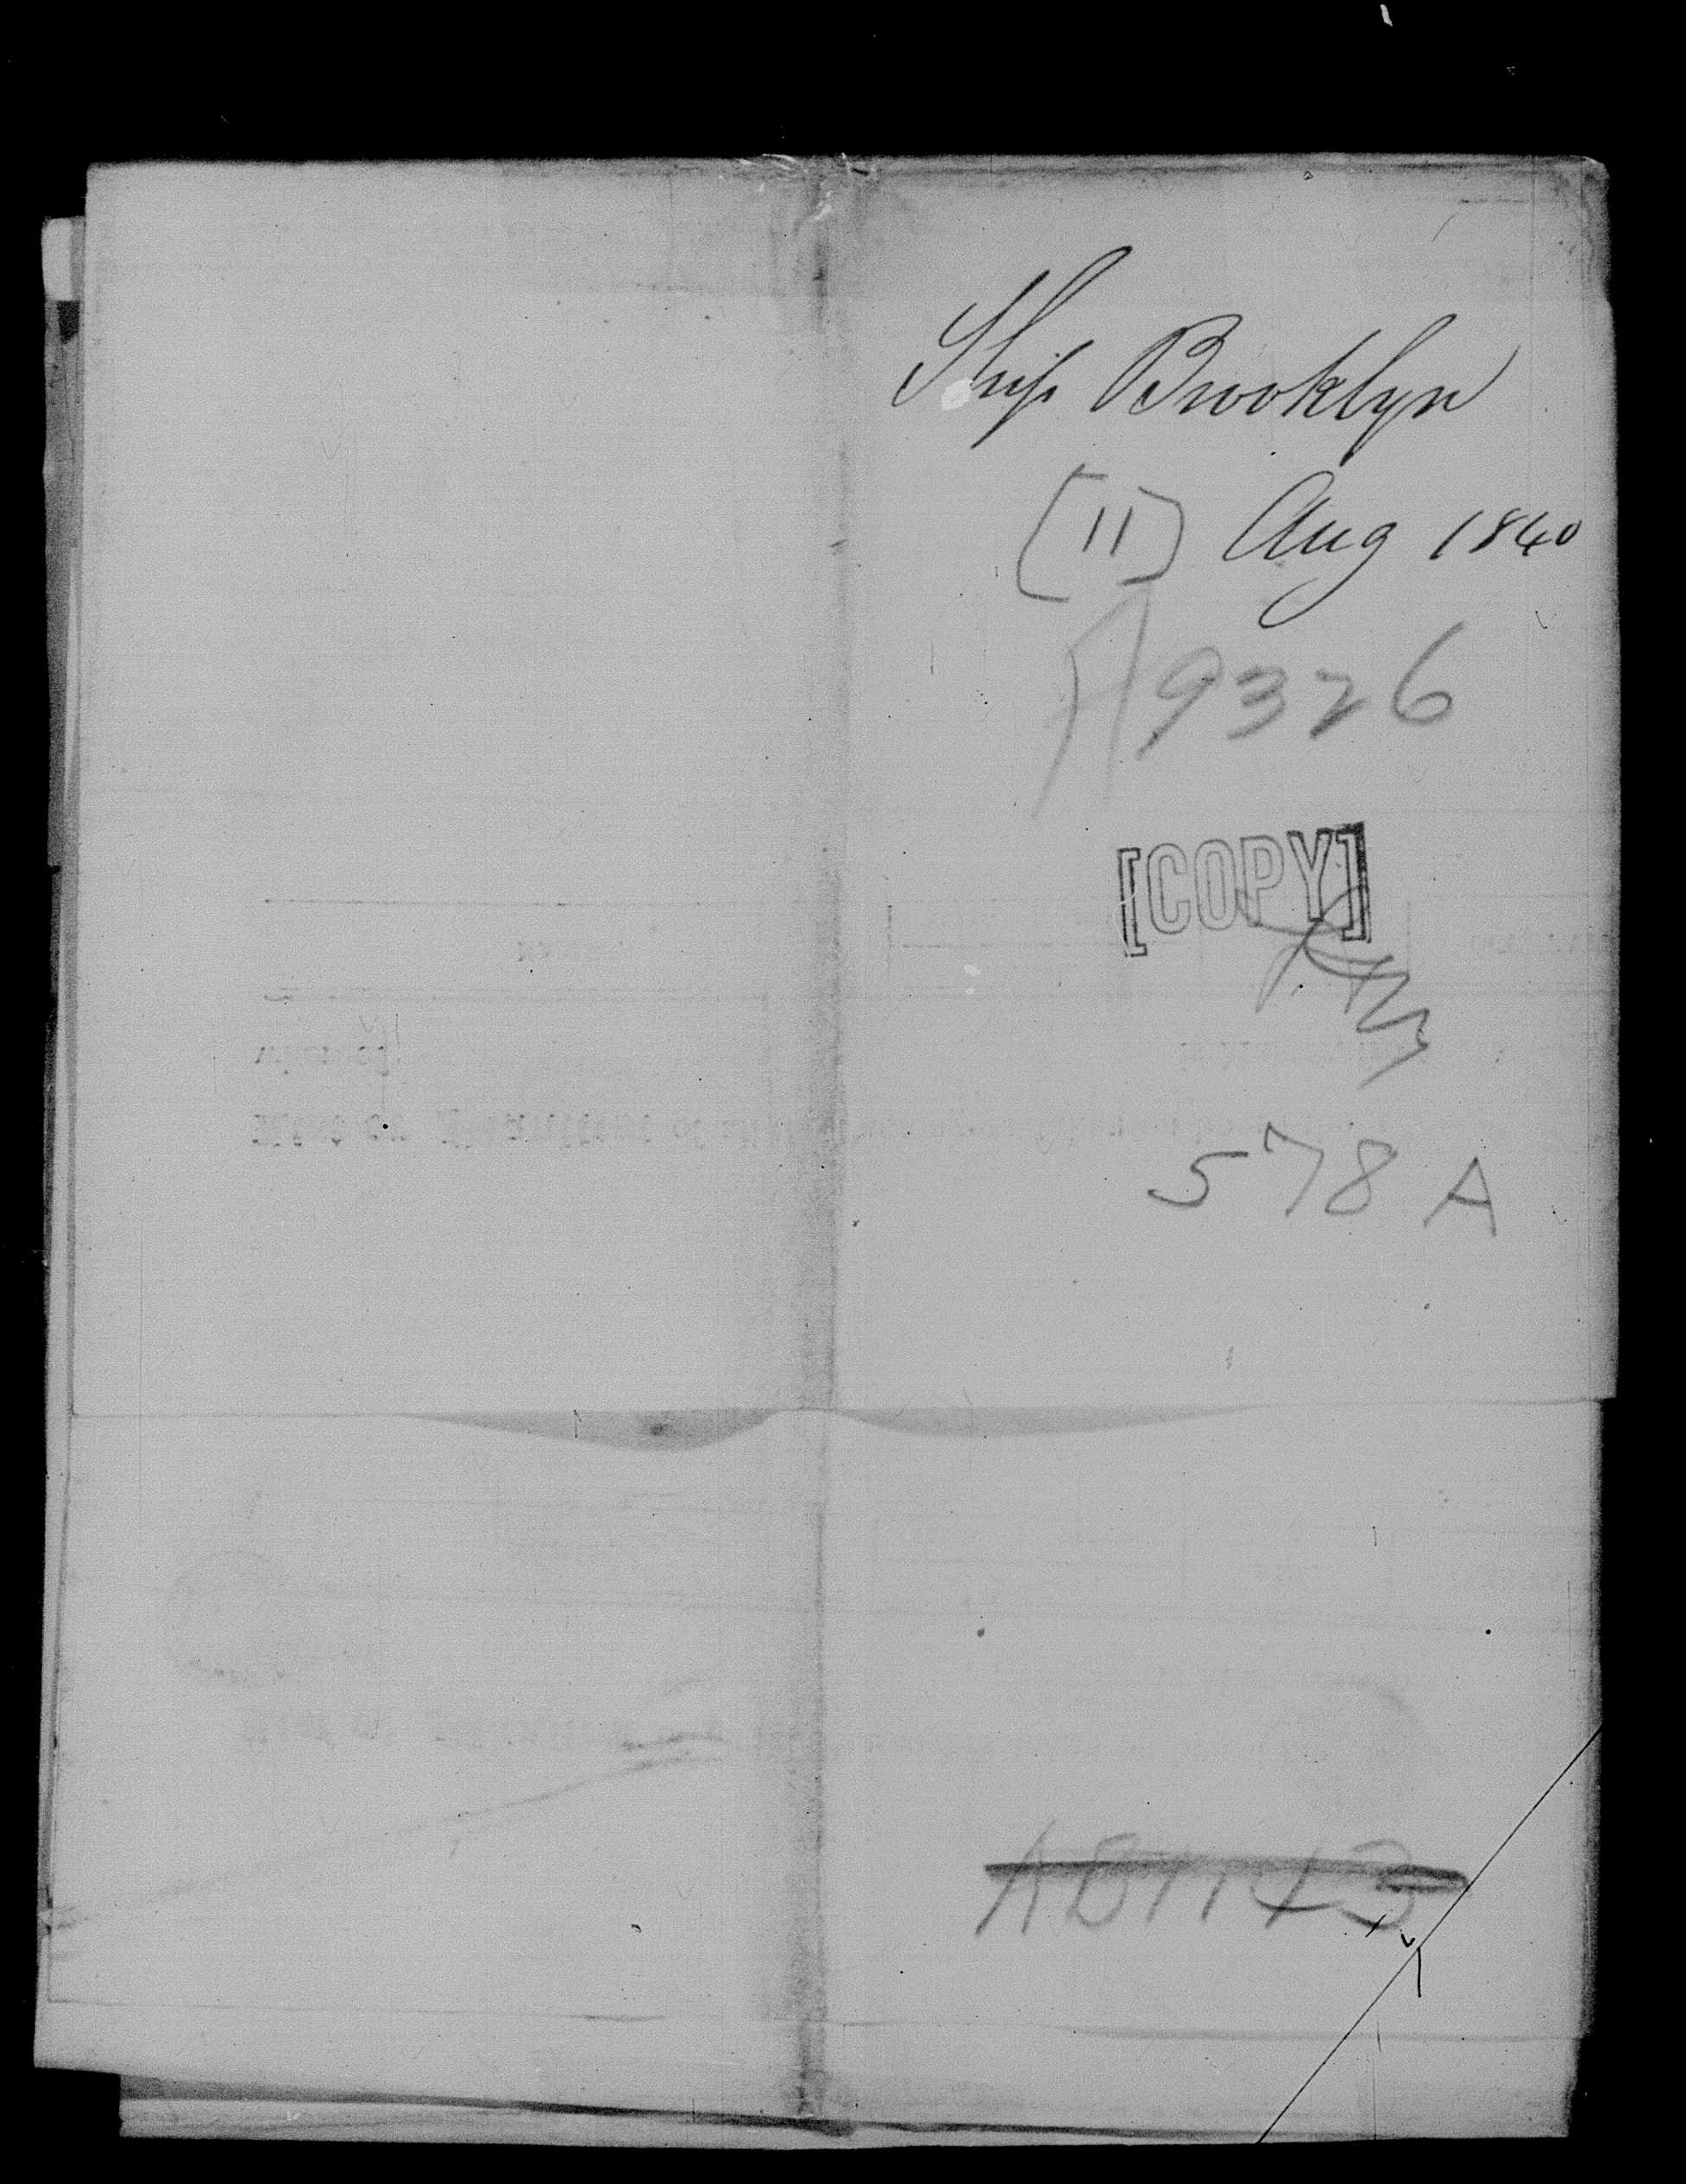 Ship Brooklyn
[11] Aug 1840
A 9326
[COPY]
578 A